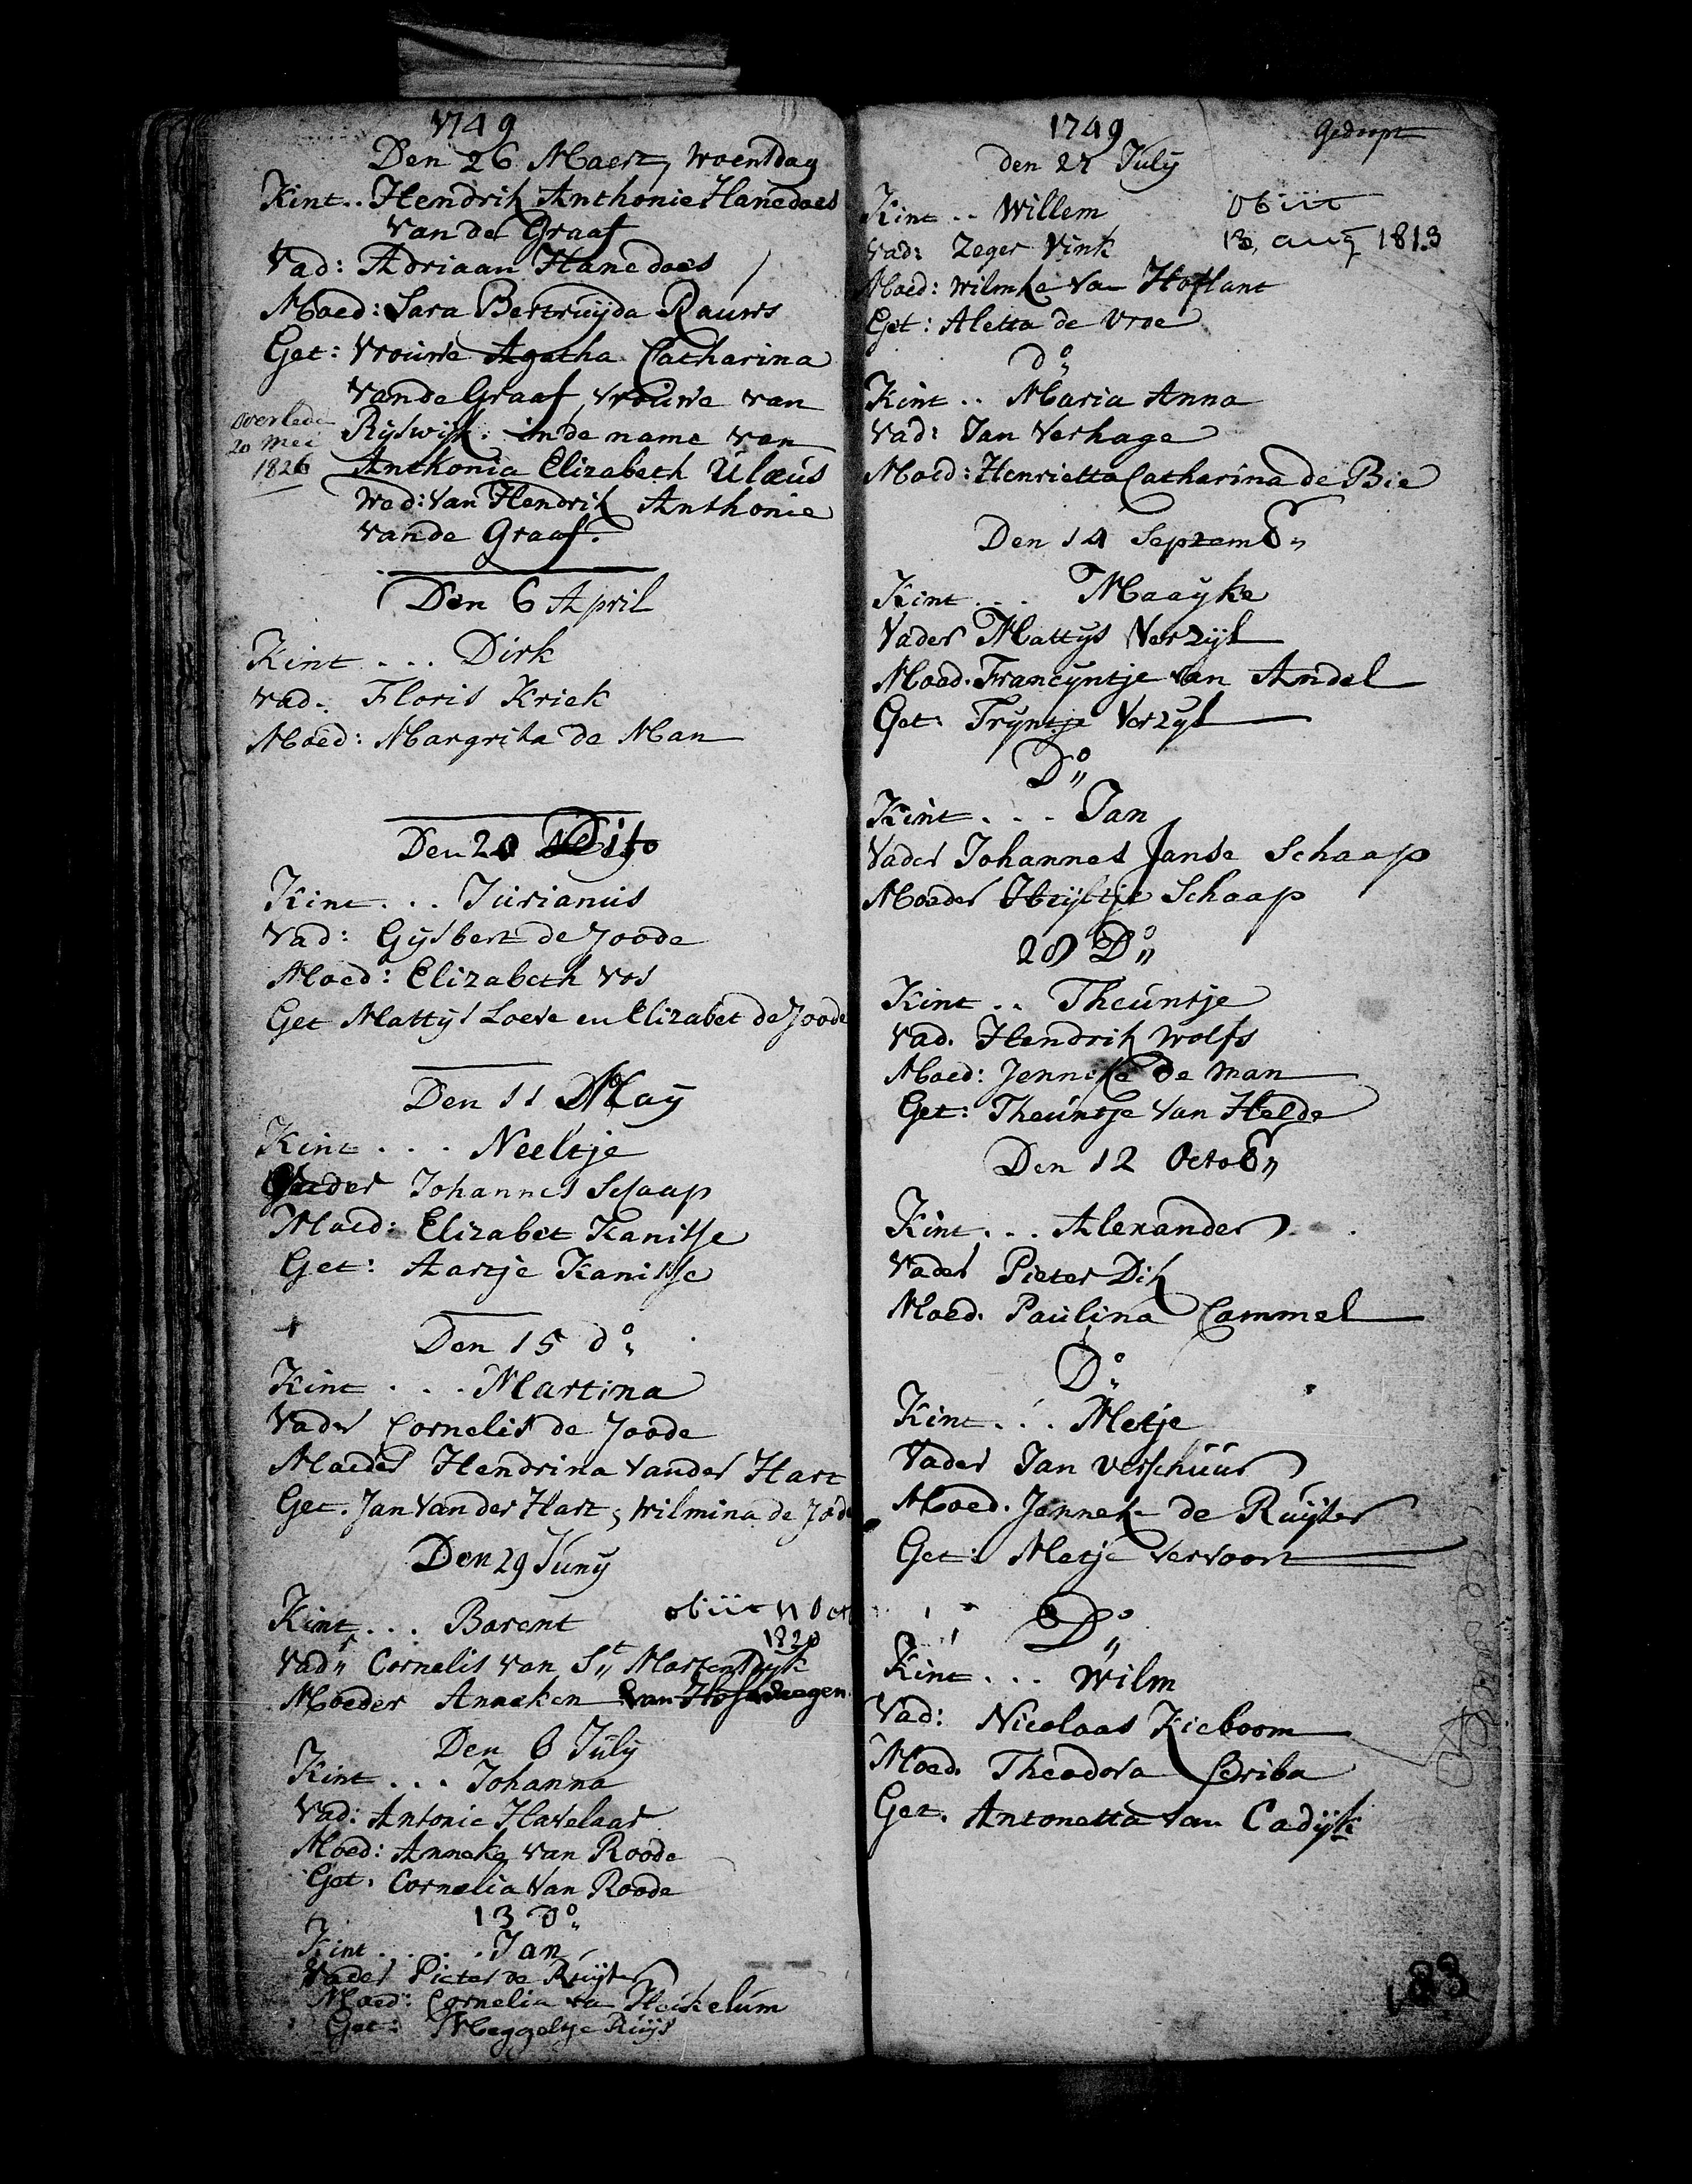 1749
Den 26 Maert, Woensdag
Kint.. Hendrik Anthonie Hanedoes
Van de Graaf
Vad: Adriaan Hanedoes
Moed: Sara Bertruijda Rauws
Get: Vrouwe Agatha Catharina
Vande Graaf, Vrouwe van
Rijswijk: inde name van
Anthonia Elizabeth Ulæus
Wed: Van Hendrik Anthonie
Vande Graaf.
overlede
20 Mei
1826
Den 6 April
Kint ... Dirk
Vad. Floris Kriek
Moed: Margrita de Man
Den 20 Dito
Kint ... Jurianus
Vad: Gijsbert de Joode
Moed: Elizabeth Vos
Get Mattijs Loeve en Elizabet de Joode
Den 11 May
Kint ... Neeltje
Vader Johannes Schaap
Moed: Elizabet Kanitse
Get: Aartje Kanisse
Den 15 do
Kint ... Martina
Vader Cornelis de Joode
Moeder Hendrina Vander Hart
Get. Jan Van der Hart, Wilmina de Jode
Den 29 Juny
Kint ... Barent
obiit 11 Oct
1820
Vad" Cornelis van St Martensdyk
Moeder Anneken van
Den 6 July
Kint ... Johanna
Vad: Antonie Havelaar
Moed: Anneke van Roode
Get. Cornelia Van Roode
13 Do
Kint ... Jan
Vader Pieter de Ruijter
Moed: Cornelia va Heikelum
Get: Meggeltje Ruijs
1749
Gedoopt
den 27 July
Kint .. Willem
Obiit
13 aug 1813
Vad: Zeger Vink
Moed: Wilmke Van Hoflant
Get: Aletta de Vroe
do
Kint .. Maria Anna
Vad: Jan Verhage
Moed: Henrietta Catharina de Bie
Den 14 Septemb"
Kint ... Maayke
Vader Mattijs Verzijl
Moed. Francyntje van Andel
Get: Tryntje Verzyl
Do
Kint ... Jan
Vader Johannes Janse Schaap
Moeder Huijbertje Schaap
28 Do
Kint .. Theuntje
Vad. Hendrik Wolfs
Moed: Jenneke de Man
Get: Theuntje Van Helde
Den 12 Octob"
Kint ... Alexander
Vader Pieter Dik
Moed. Paulina Cammel
Do
Kint ... Metje
Vader Jan Verschuur
Moed. Jenneke de Ruijter
Get: Metje Vervoorn
Do
Kint ... Wilm
Vad: Nicolaas Kieboom
Moed. Theodora Scriba
Get. Antonetta van Cadijk
83